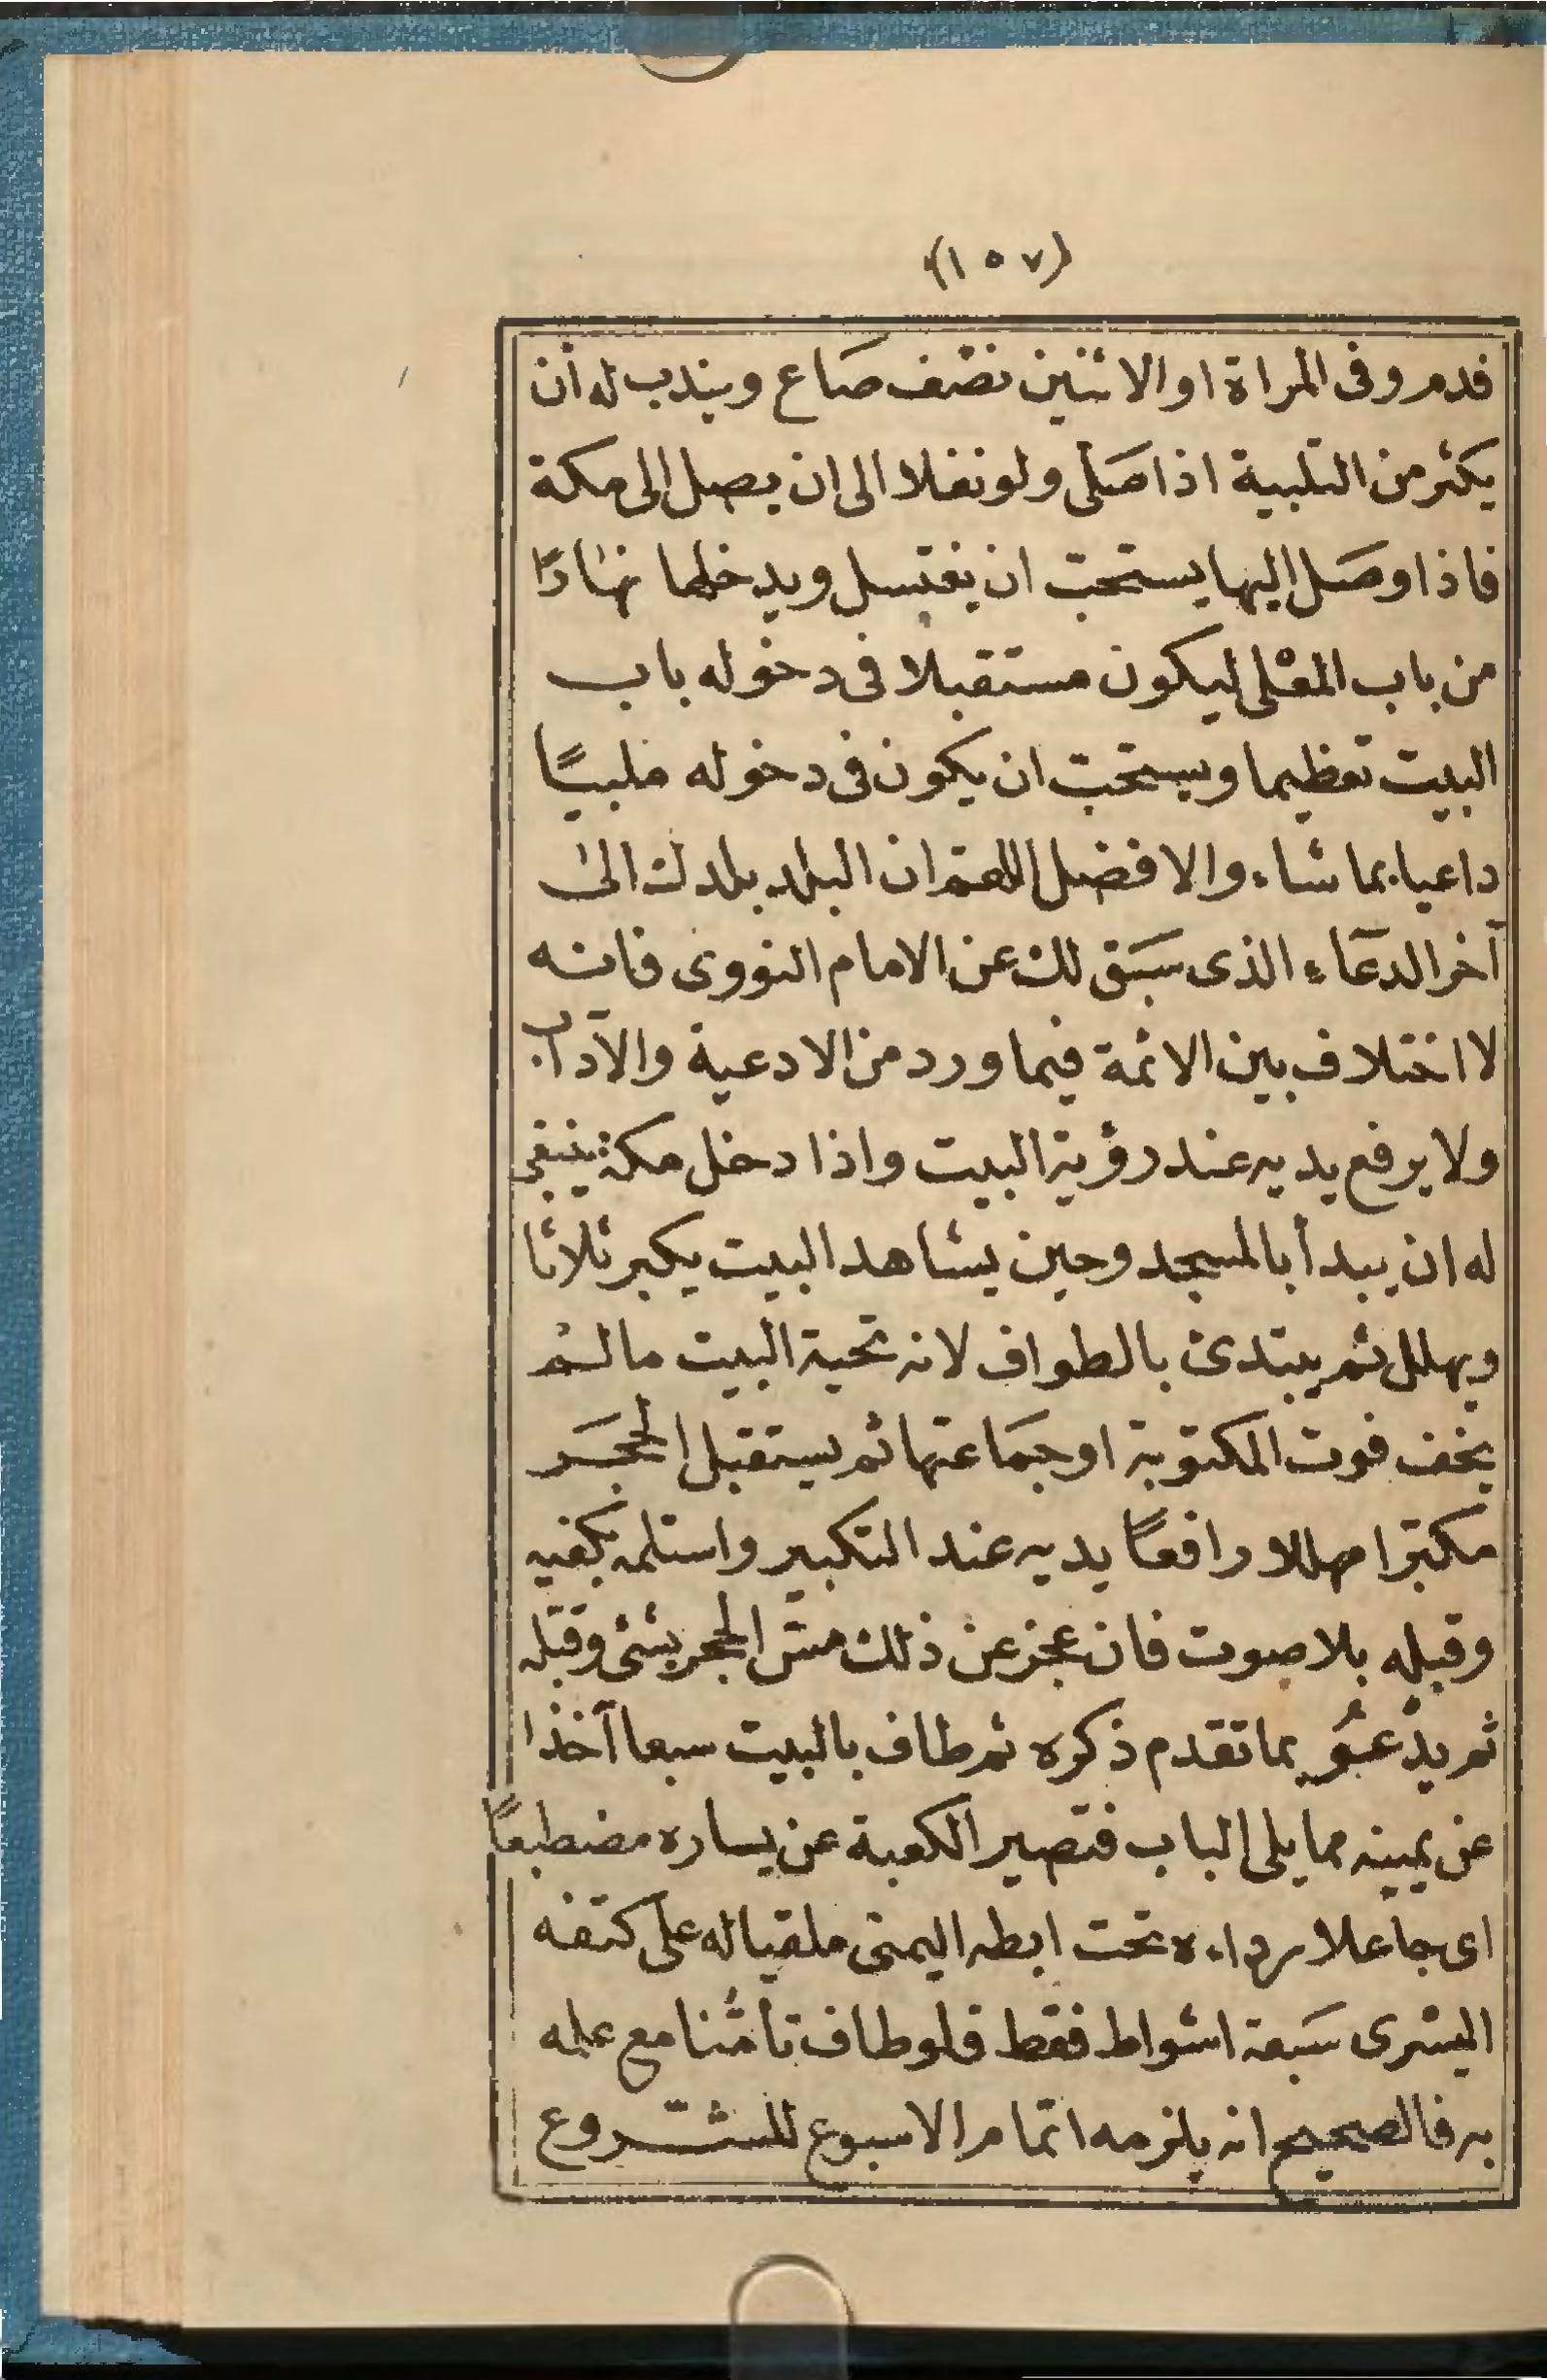 (١٥٧)
فدم وفى المراة او الاثنين نصف صاع ويندب له أن
يكثر من التلبية اذا صلى ولو نفلا الى ان يصل الى مكة
فاذا وصل اليها يستحب ان يغتسل ويدخلها نهارًا
من باب المعْلى ليكون مستقبلا فى دخوله باب
البيت تعظيما ويستحب ان يكون فى دخوله ملبيًا
داعيا بما شاء والافضل اللهم ان البلد بلدك الى
آخر الدعاء الذى سبق لك عن الامام النووى فانه
لا اختلاف بين الائمة فيما ورد من الادعية والآداب
ولا يرفع يديه عند رؤية البيت واذا دخل مكة ينبغى
له ان يبدأ بالمسجد وحين يشاهد البيت يكبر ثلاثا
ويهلل ثم يبتدئ بالطواف لانه تحية البيت ما لم
يخف فوت المكتوبة او جماعتها ثم يستقبل الحجر
مكبّرا مهللا رافعًا يديه عند التكبير واستلمه بكفيه
وقبله بلا صوت فان عجز عن ذلك مسّ الحجر بشئ وقبّله
ثم يدْعُو بما تقدم ذكره ثم طاف بالبيت سبعا آخذا
عن يمينه مما يلى الباب فتصير الكعبة عن يساره مضطبعًا
اى جاعلا رداءه تحت ابطه اليمنى ملقيا له على كتفه
اليسْرى سبعة اشواط فقط فلو طاف ثامنا مع علمه
به فالصحيح انه يلزمه اتمام الاسبوع للشروع